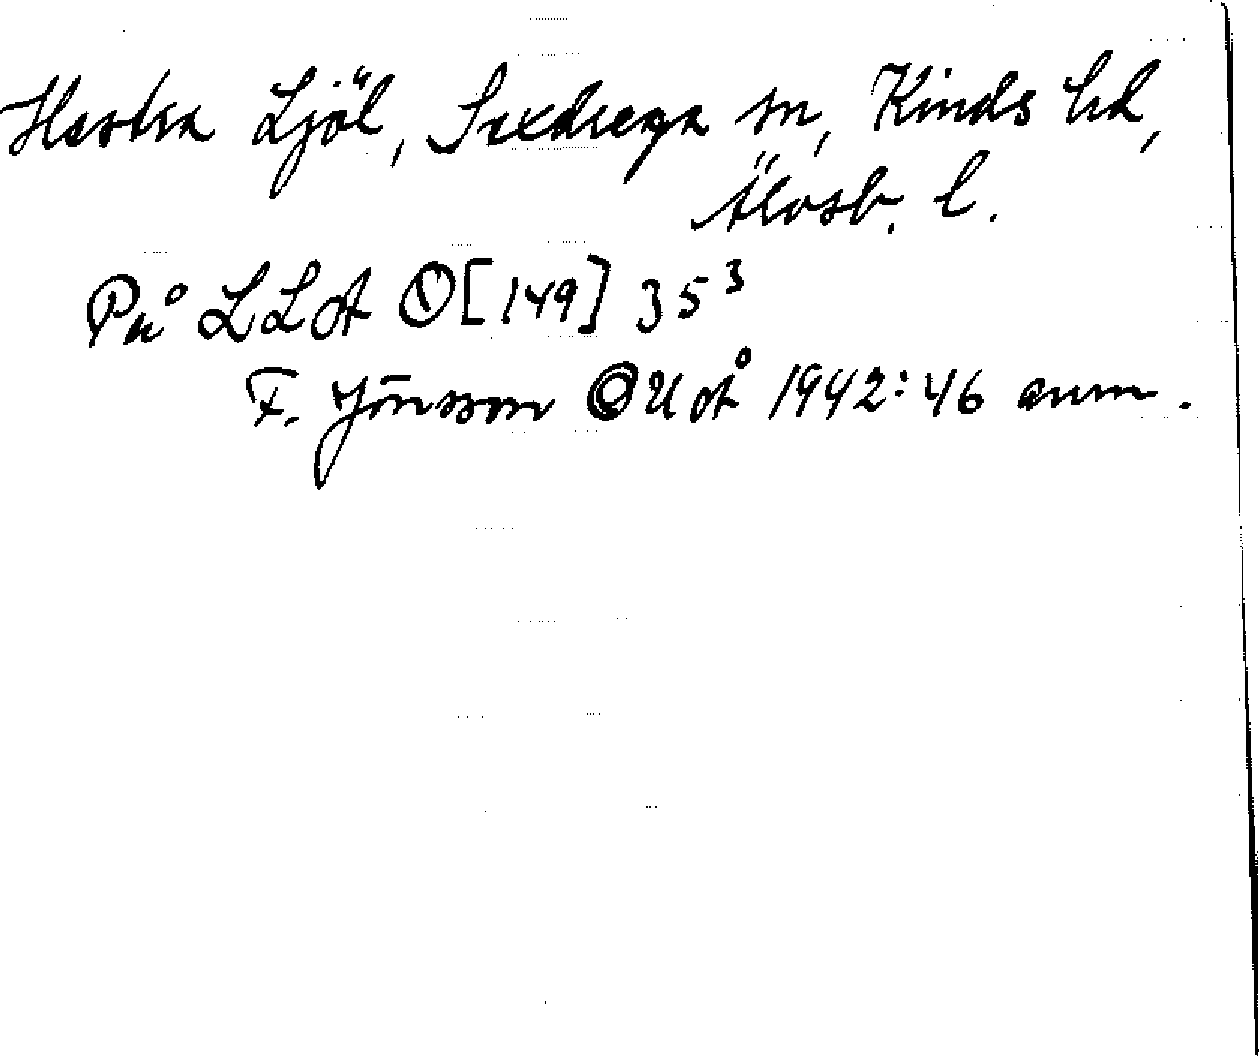 Hestra Ljöl, Sexdrega sn, Kinds hd,
Älvsb. l.
På LLA O[149] 35³
F. Jönsson OUÅ 1942:46 anm.